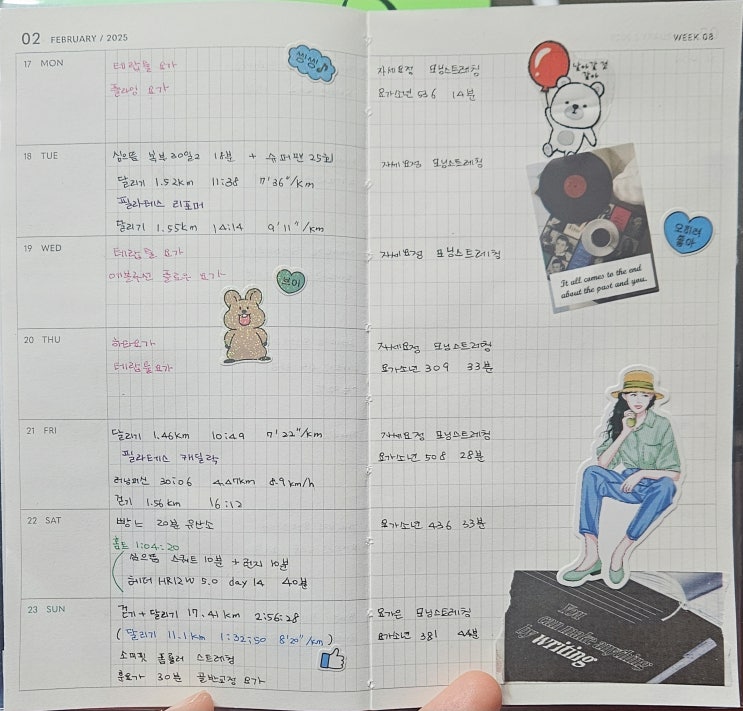 02 FEBRUARY / 2025
WEEK 08
17 MON
테라필 요가
플라잉 요가
씽씽♪
자세요정 모닝스트레칭
요가소년 536 14분
날아갈 것
같아
18 TUE
심으뜸 복부 30일2 18분 + 슈퍼맨 25회
달리기 1.52km 11:38 7'36"/km
필라테스 리포머
달리기 1.55km 14:14 9'11"/km
자세요정 모닝스트레칭
It all comes to the end
about the past and you.
오히려
좋아
19 WED
테라필 요가
에볼루션 플로우 요가
브이
자세요정 모닝스트레칭
20 THU
하타요가
테라필요가
자세요정 모닝스트레칭
요가소년 309 33분
21 FRI
달리기 1.46km 10:49 7'22"/km
필라테스 캐딜락
러닝머신 30:06 4.47km 8.9km/h
걷기 1.56km 16:12
자세요정 모닝스트레칭
요가소년 508 28분
22 SAT
빵느 20분 유산소
홈트 1:04:20
심으뜸 스쿼트 10분 + 런지 10분
헤더 HR12W 5.0 day 14 40분
요가소년 436 33분
23 SUN
걷기 + 달리기 17.41km 2:56:28
(달리기 11.1km 1:32:50 8'20"/km)
소미핏 폼롤러 스트레칭
요가 30분 골반교정 요가
요가은 모닝스트레칭
요가소년 381 44분
You
can make anything
by writing